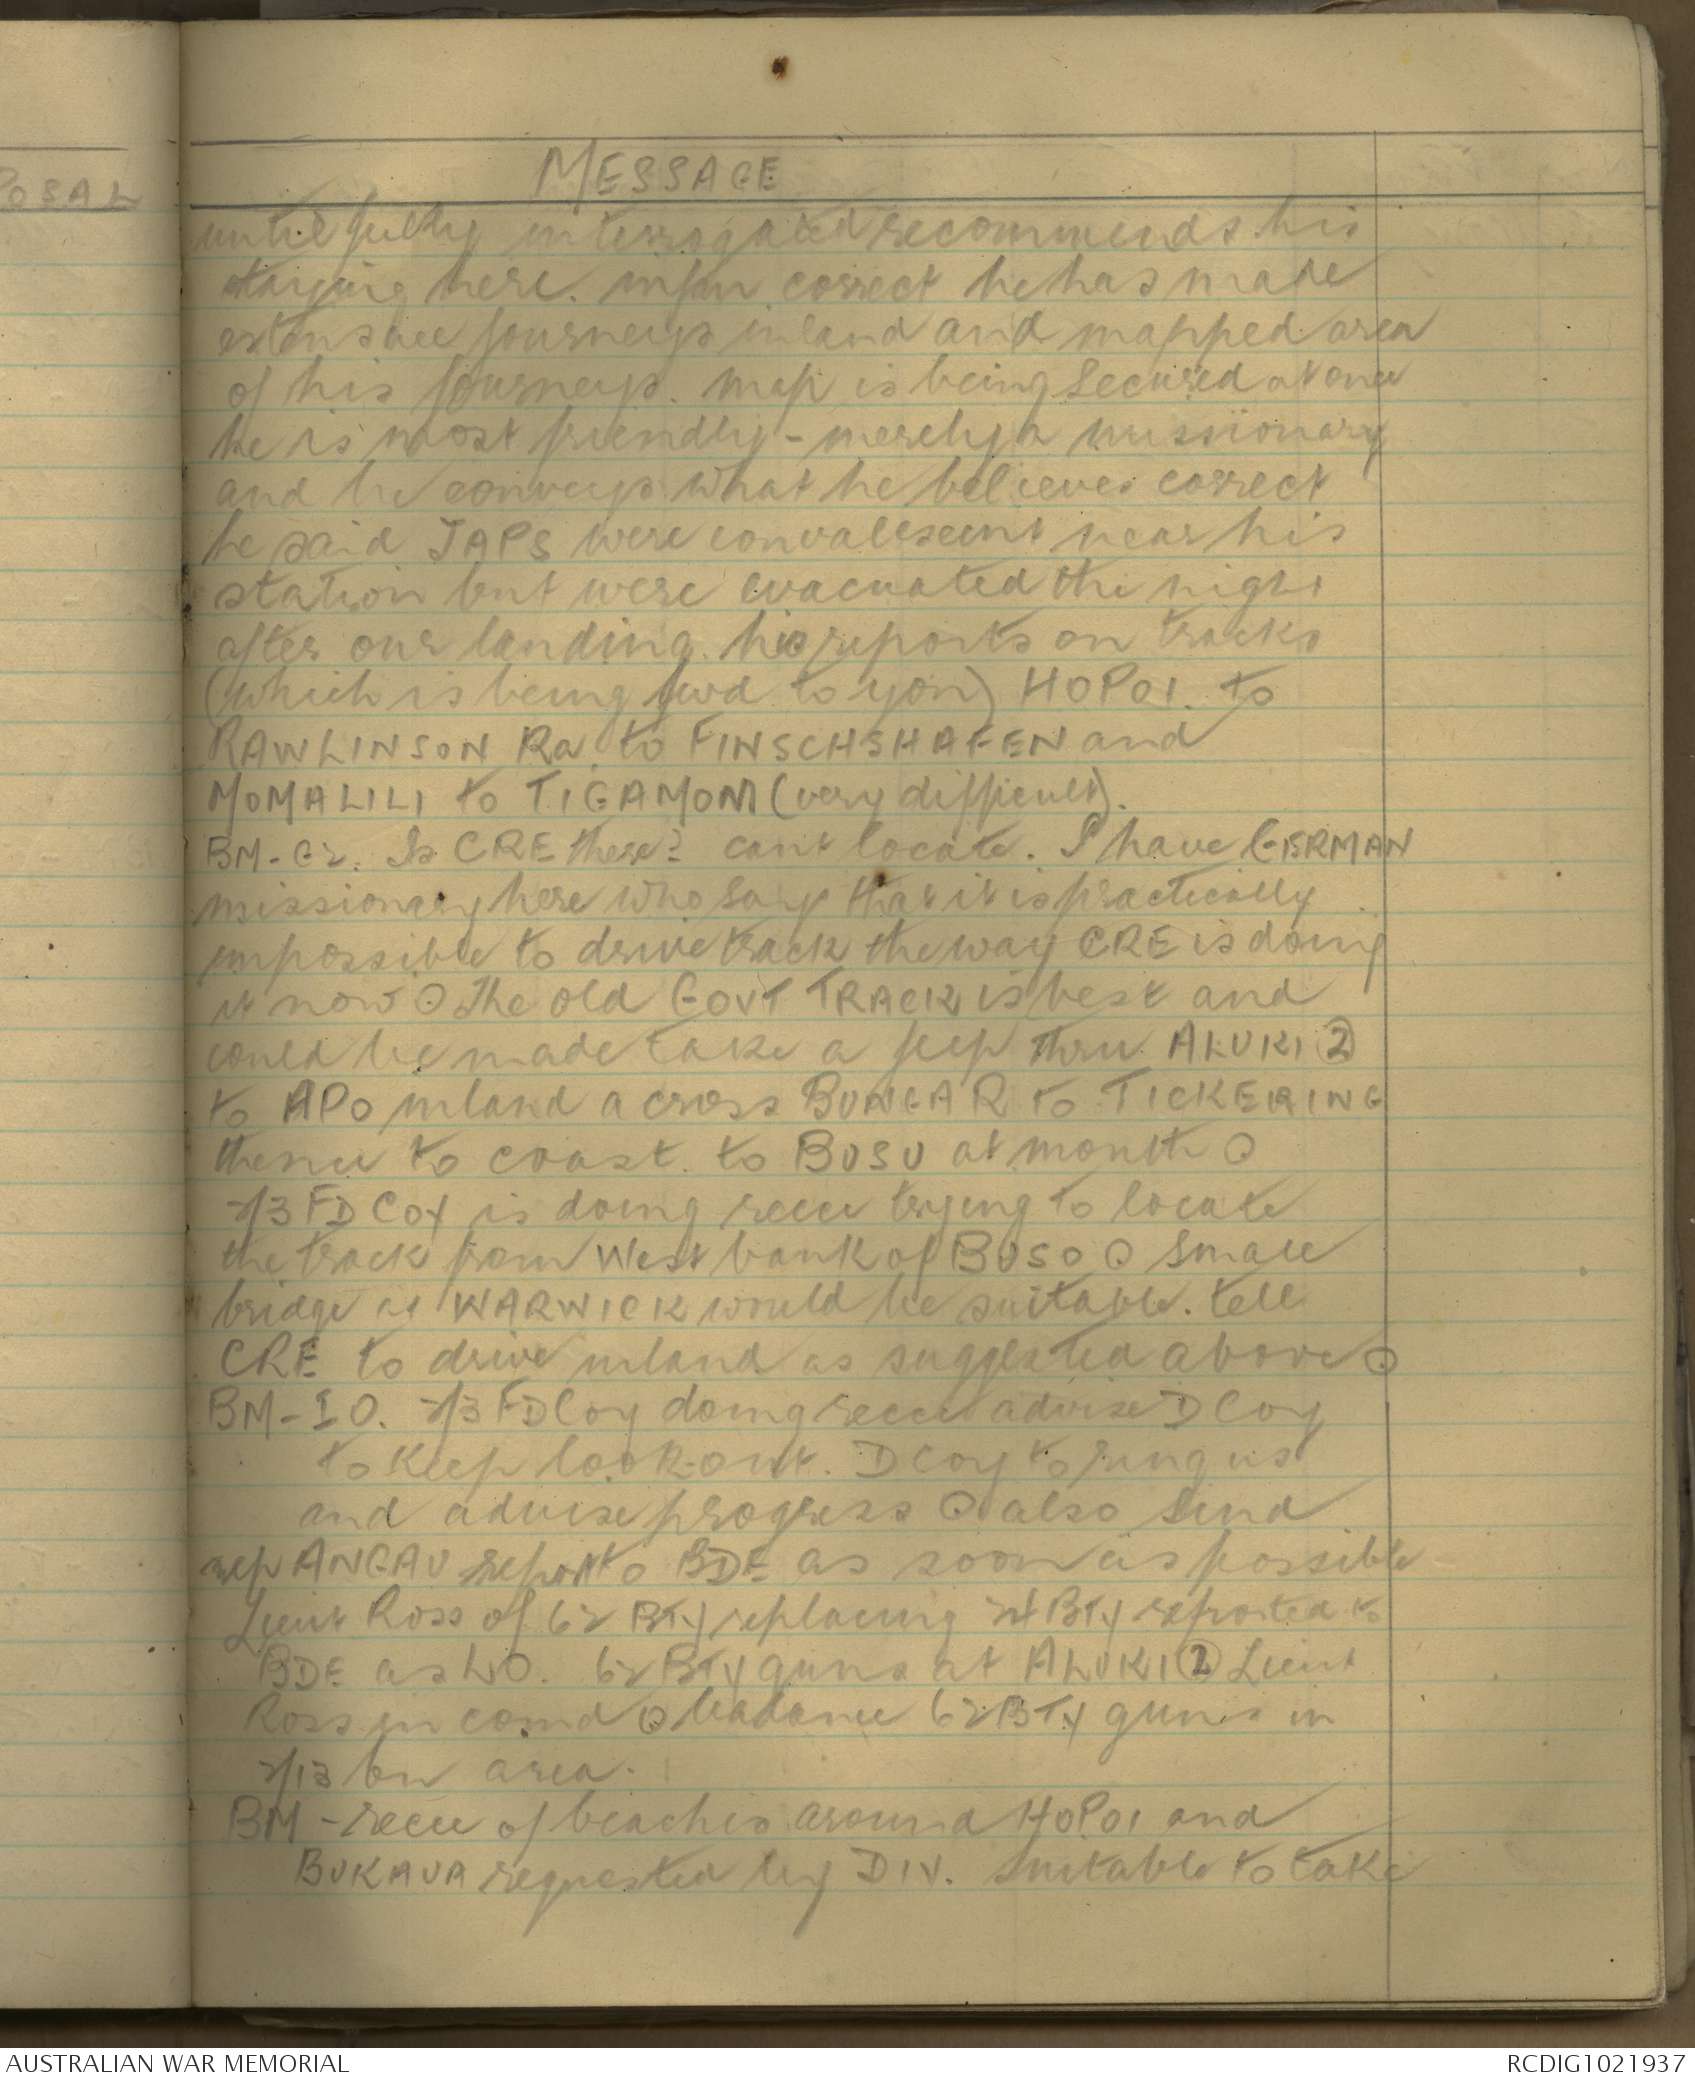 POSAL
MESSAGE
until fully interrogated recommends his
staying here. infm correct he has made
extensive journeys inland and mapped area
of his journeys. map is being secured at once
he is most friendly - merely a missionary
and he conveys what he believes correct
he said JAPS were convalescent near his
station but were evacuated the night
after our landing. his reports on tracks
(which is being fwd to you) HOPOI. to
RAWLINSON Ra. to FINSCHSHAFEN and
MOMALILI to TIGAMOM (very difficult).
BM-G2. Is CRE there? cant locate. I have GERMAN
missionary here who says that it is practically
impossible to drive track the way CRE is doing
it now ⊙ The old GOVT TRACK is best and
could be made take a jeep thru ALUKI ②
to APO inland across BUNGAR to TICKERING
thence to coast. to BUSU at mouth ⊙
2/3 FD COY is doing recce trying to locate
the track from West bank of BUSO ⊙ Small
bridge at WARWICK would be suitable. tell
CRE to drive inland as suggested above ⊙
BM-IO. 2/3 FD Coy doing recce advise D Coy
to keep look-out. D Coy to ring us
and advise progress ⊙ also send
rep ANGAU report to BDE as soon as possible
Lieut Ross of 62 BTY replacing 24 BTY reported to
BDE as LO. 62 BTY guns at ALUKI ② Lieut
Ross in comd ⊙ baldance 62 BTY guns in
2/13 bn area.
BM - recce of beaches around HOPOI and
BUKAUA requested by DIV. suitable to take
AUSTRALIAN WAR MEMORIAL
RCDIG1021937